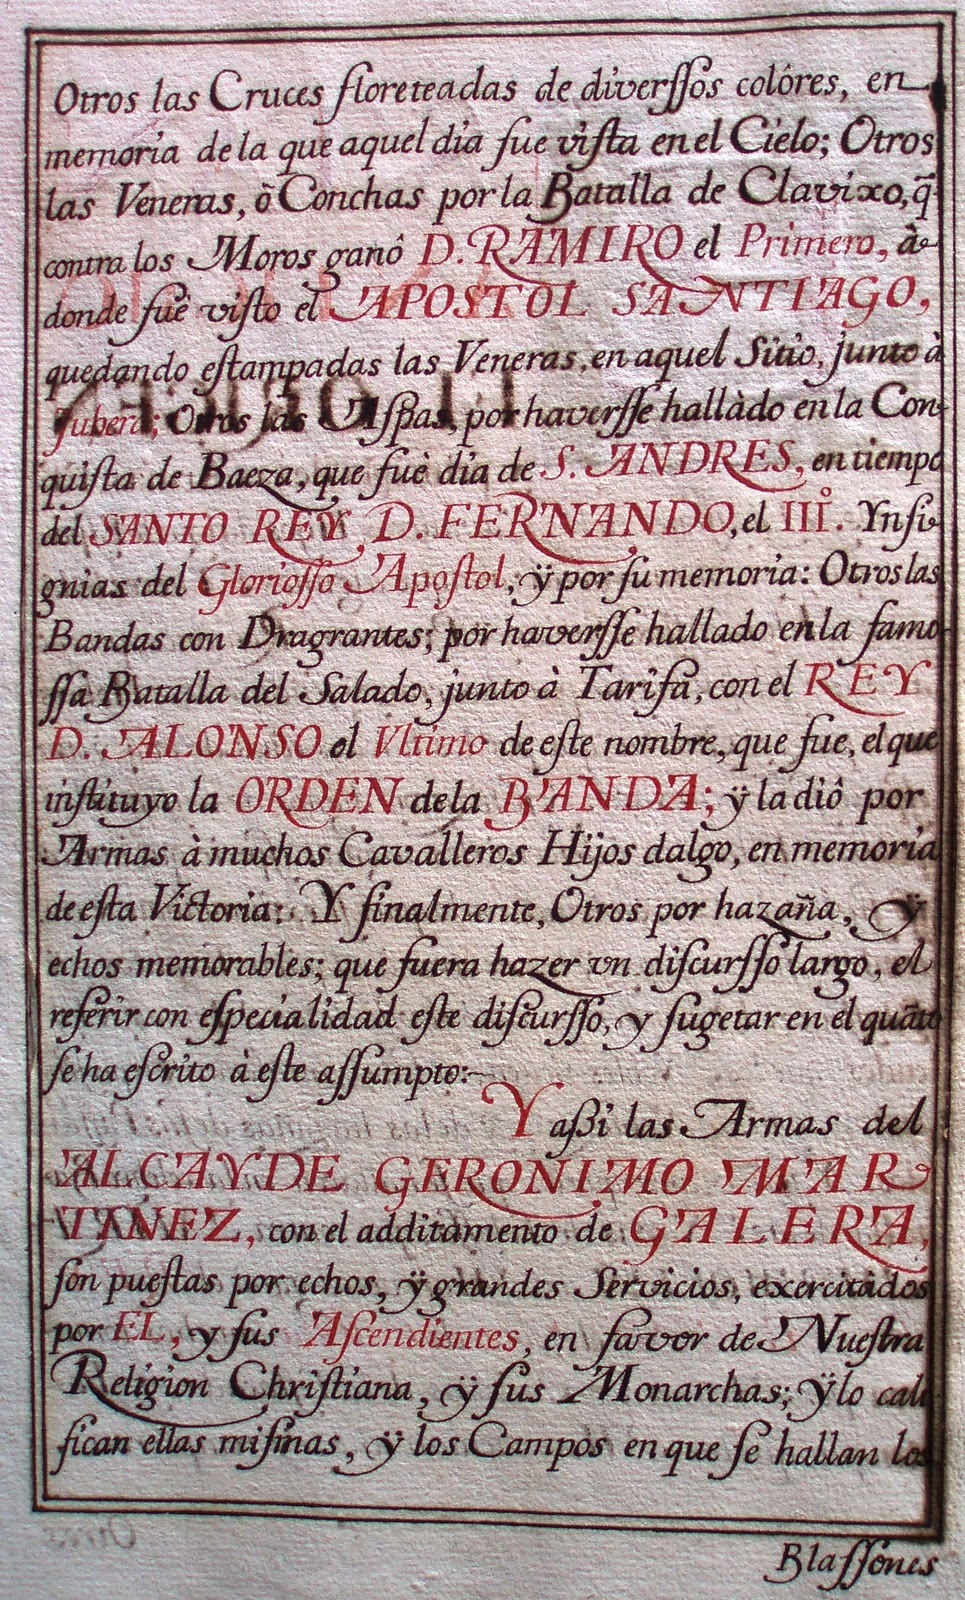 Otros las Cruces floreteadas de diverſſos colôres, en
memoria de la que aquel dia fue viſta en el Cielo; Otros
las Veneras, ò Conchas por la Batalla de Clavixo, q̃
contra los Moros ganô D. RAMIRO el Primero, à
donde fuè viſto el APOSTOL SANTIAGO,
quedando eſtampadas las Veneras, en aquel Sitio, junto à
Jubera; Otros las Aſpas, por haverſſe hallàdo en la Con-
quiſta de Baeza, que fuè dia de S. ANDRES, en tiempo
del SANTO REY, D. FERNANDO, el III.º Ynſi-
gnias del Glorioſſo Apoſtol, ÿ por ſu memoria: Otros las
Bandas con Dragrantes; por haverſſe hallado en la famo-
ſſa Batalla del Salado, junto à Tarifa, con el REY
D. ALONSO el Vltimo de eſte nombre, que fue, el que
inſtituyo la ORDEN de la BANDA; ÿ la diô por
Armas à muchos Cavalleros Hijos dalgo, en memoria
de eſta Victoria: Y finalmente, Otros por hazaña, ÿ
echos memorables; que fuera hazer vn diſcurſſo largo, el
referir con eſpecialidad eſte diſcurſſo, y ſugetar en el quãto
ſe ha eſcrito à eſte aſſumpto:~
Y aßi las Armas del
ALCAYDE GERONIMO MAR
TINEZ, con el additamento de GALERA,
ſon pueſtas por echos, ÿ grandes Servicios, exercitàdos
por EL, y ſus Aſcendientes, en favor de Nueſtra
Religion Chriſtiana, ÿ ſus Monarchas; ÿ lo cali-
fican ellas miſmas, ÿ los Campos en que ſe hallan los
Blaſſones